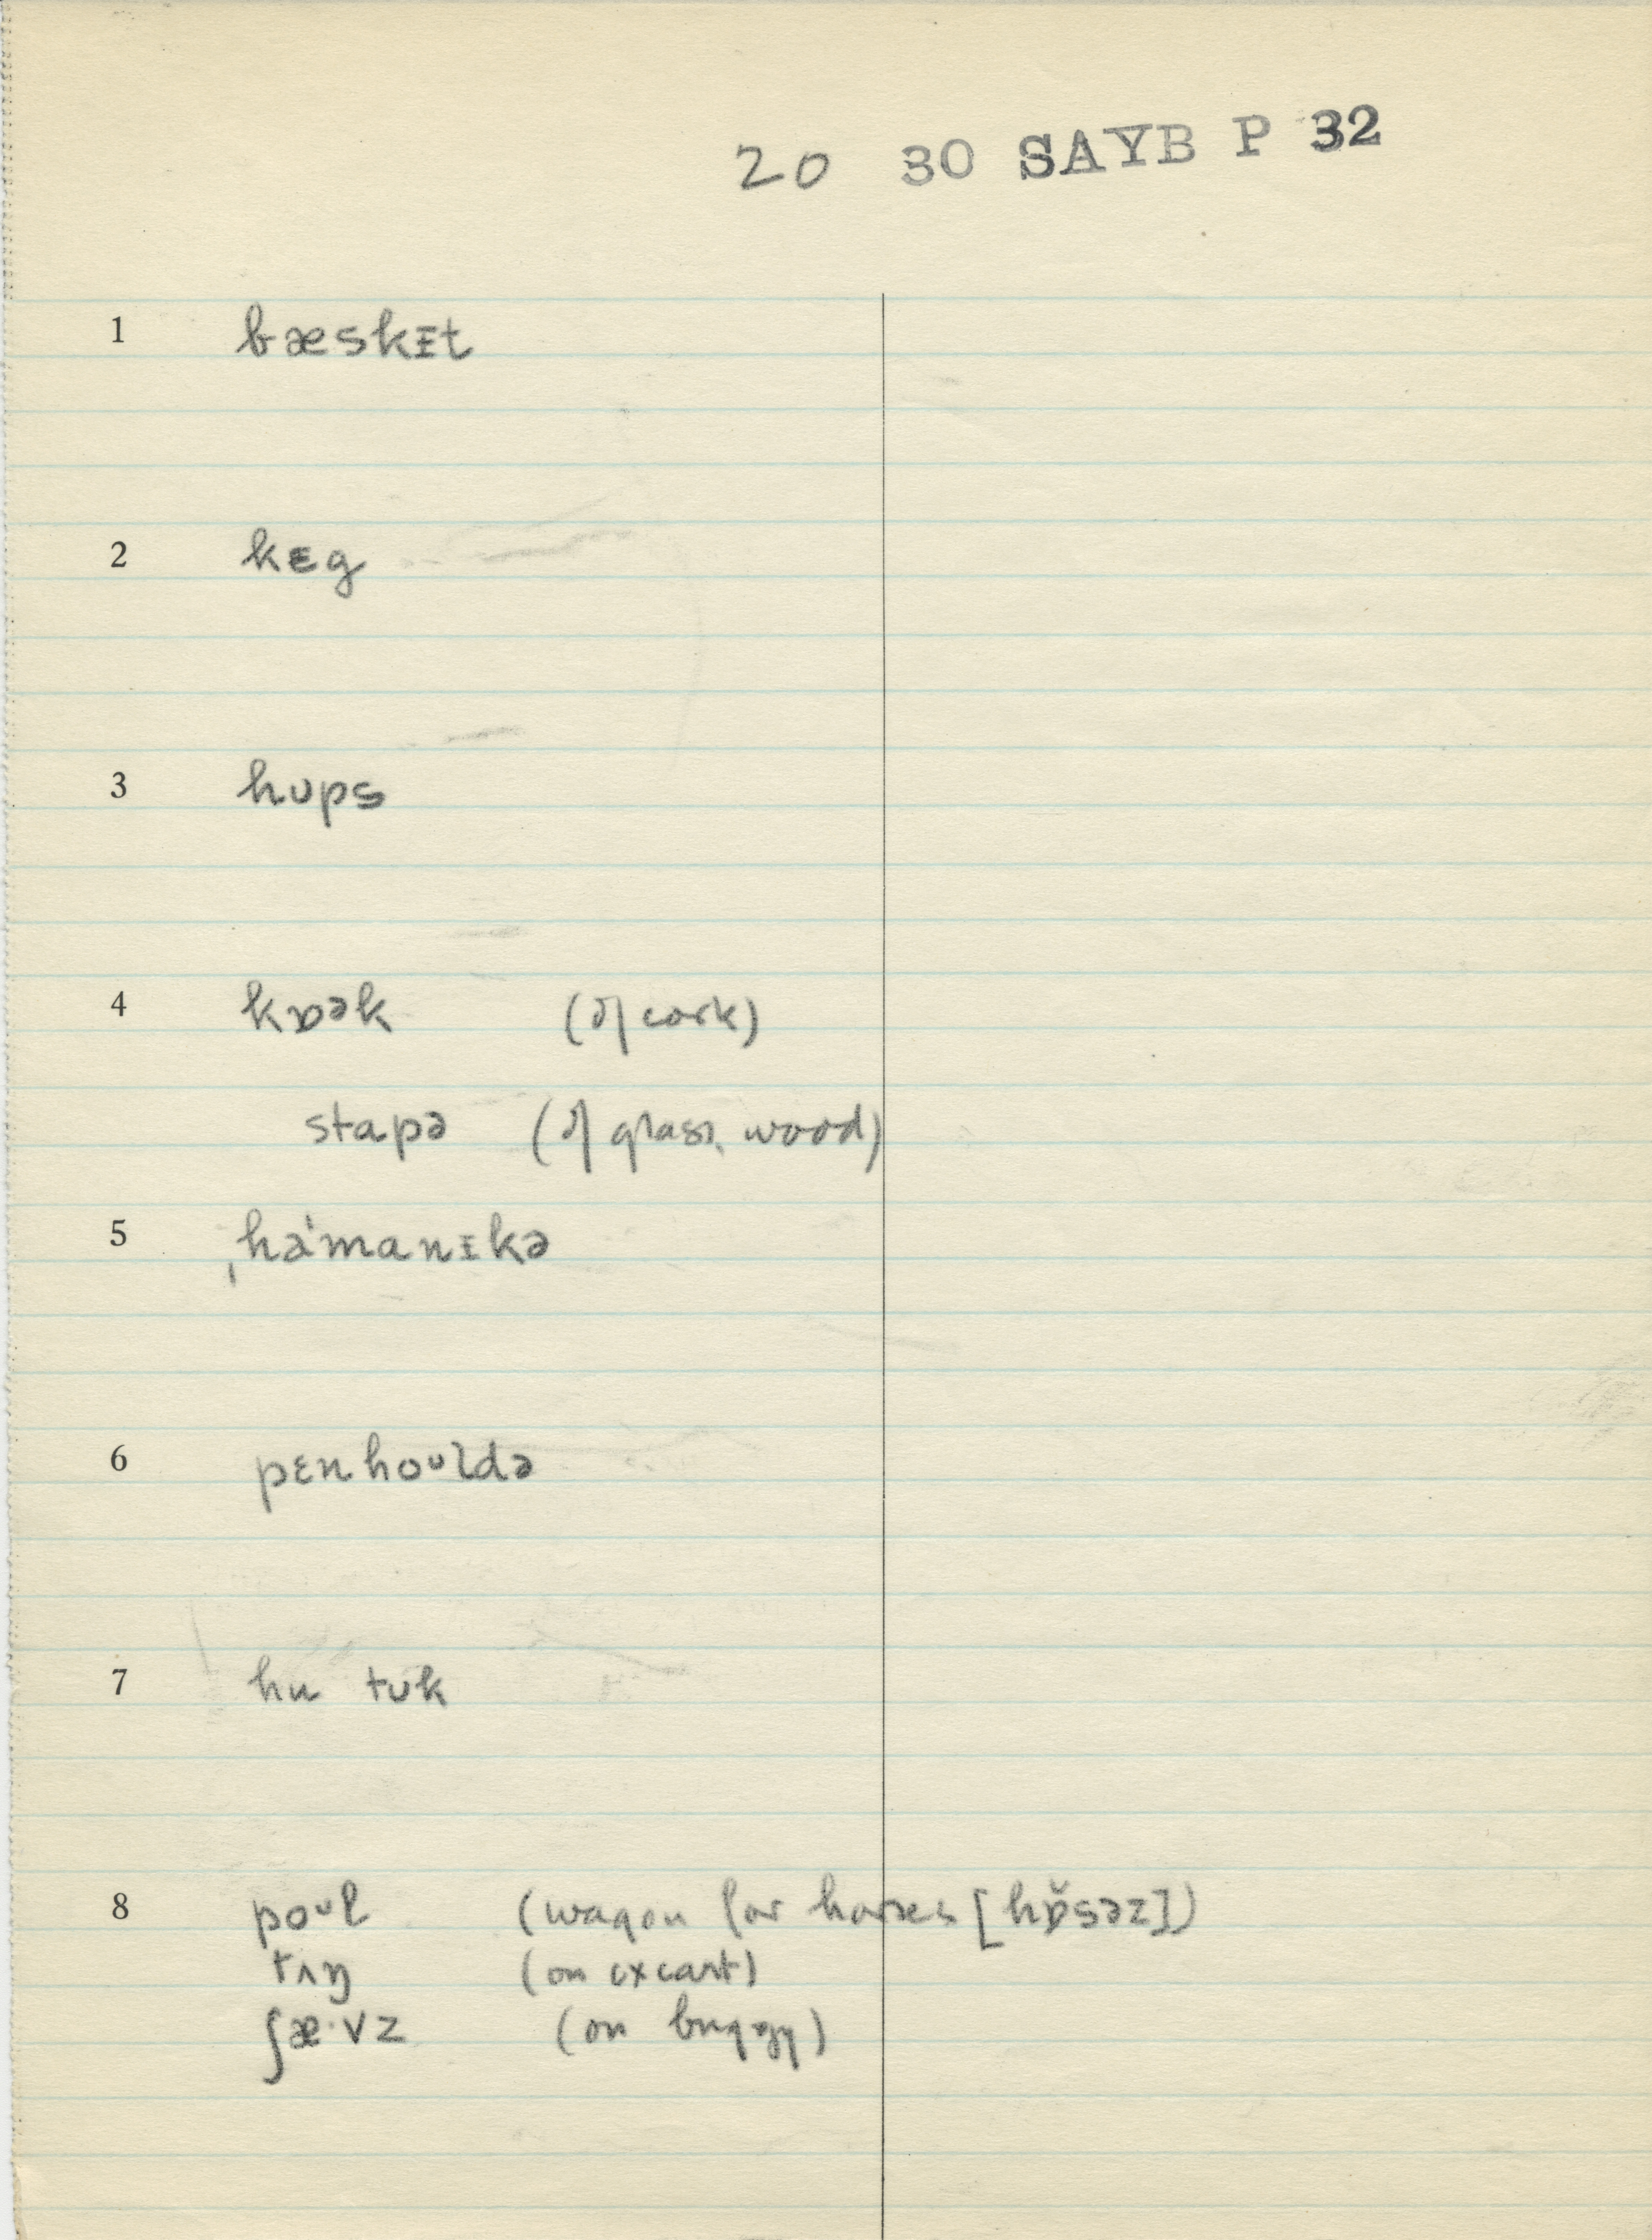 20 30 SAYB P 32
1 bæskɪt
2 kɛg
3 hʊps
4 kɒək (of cork)
stapə (of glass, wood)
5 ˌhaˈmanɪkə
6 pɛnhoᶷldə
7 hu tʊk
8 poᶷl (wagon for horses [hɒ̆səz])
tʌŋ (on oxcart)
ʃæ·vz (on buggy)